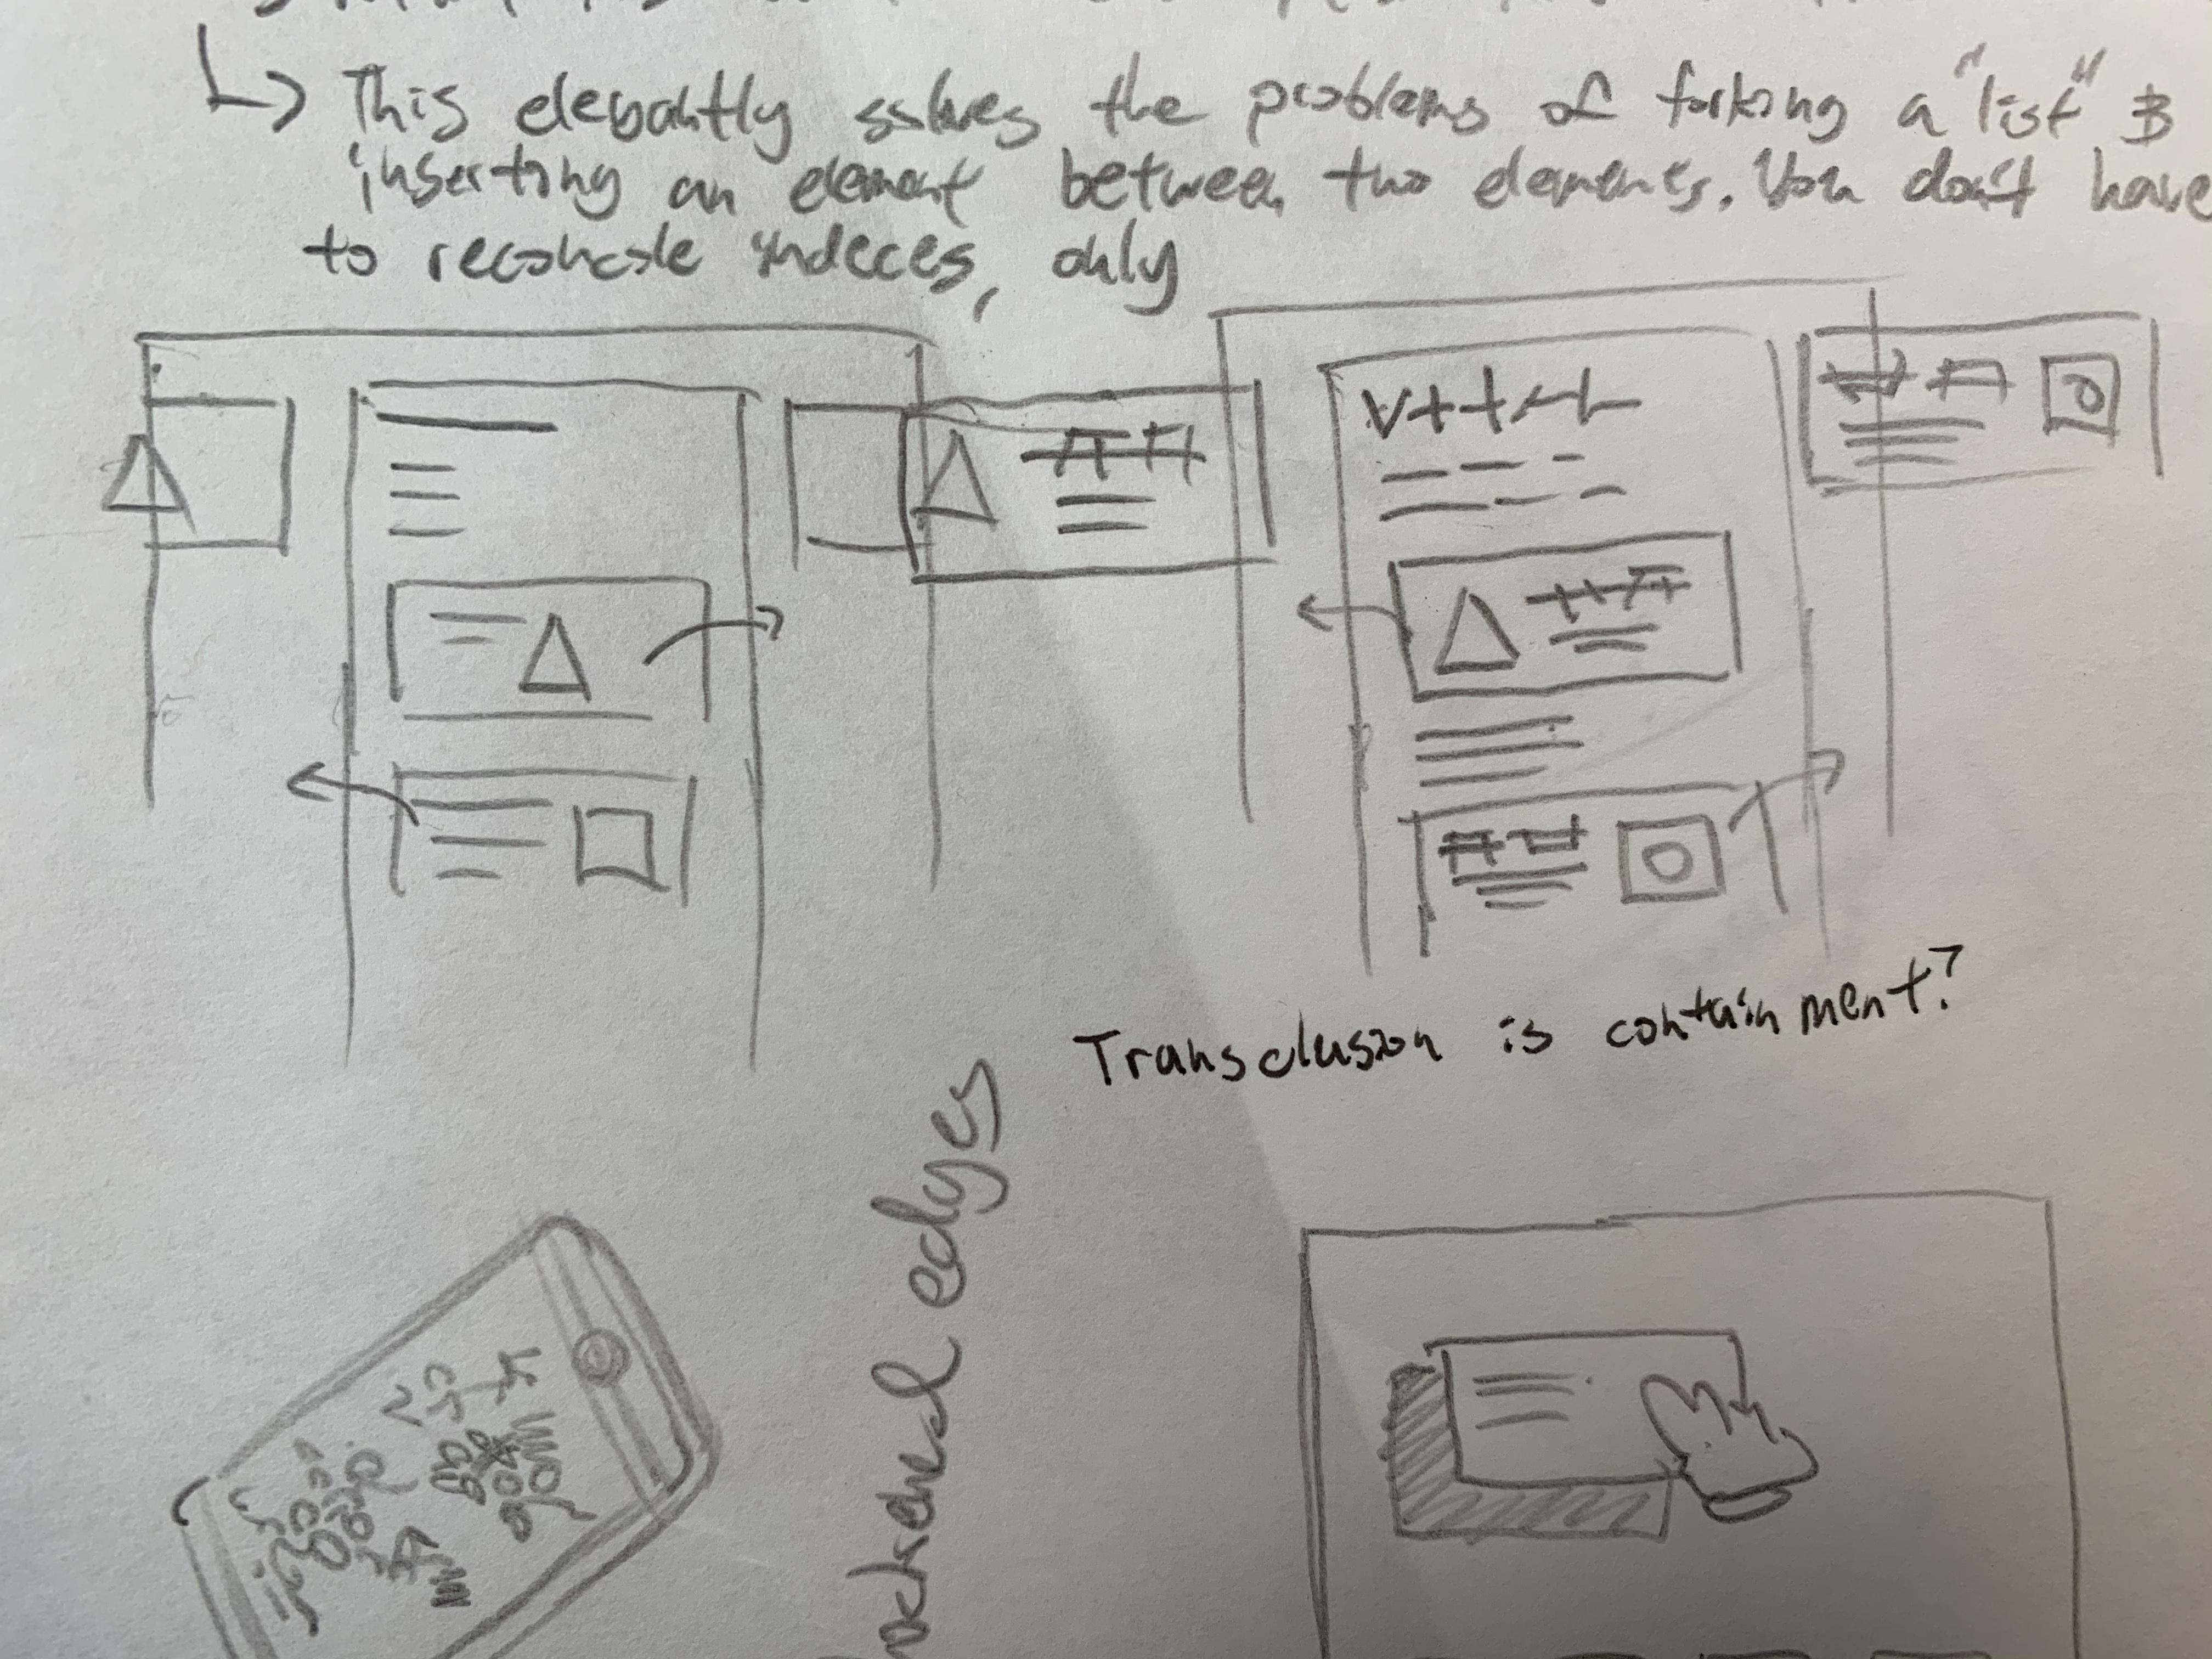 ↳ This elegantly solves the problems of forking a "list" &
inserting an element between two elements. You don't have
to reconcile indeces, only
Transclusion is containment?
edges